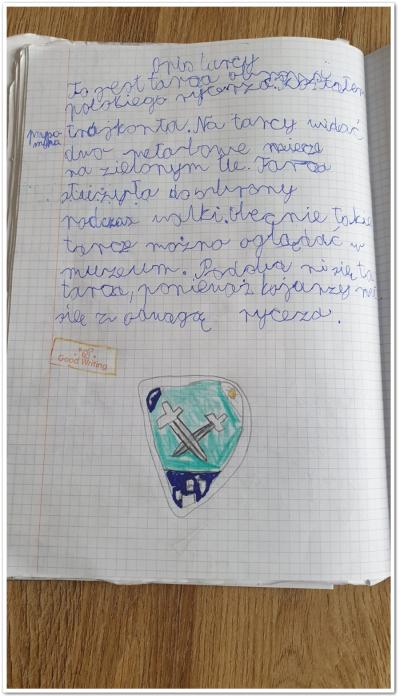 Opis tarczy
To jest tarcza
polskiego rycerza.
przypo-
mina
trujkonta. Na tarcy widać
dwa metalowe miecze
na zielonym tle. Tarcza
służyła do obrony
podczas walki. Obecnie takie
tarcze można oglądać w
muzeum. Podoba mi się ta
tarcza, ponieważ kojarzy mi
się z odwagą rycerza.
Good Writing